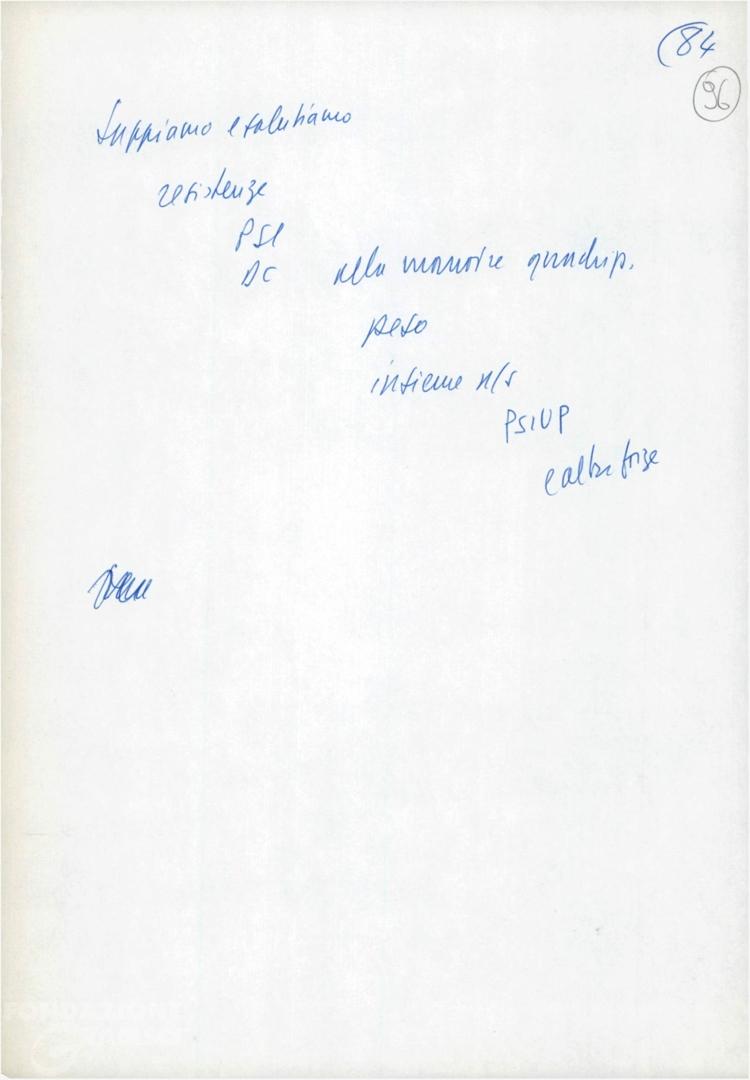 (84
96
Suppiamo e salutiamo
resistenze
PSI
DC alla manovre quadrip.
peso
insieme n/s
PSIUP
e altre forze
FONDAZIONE